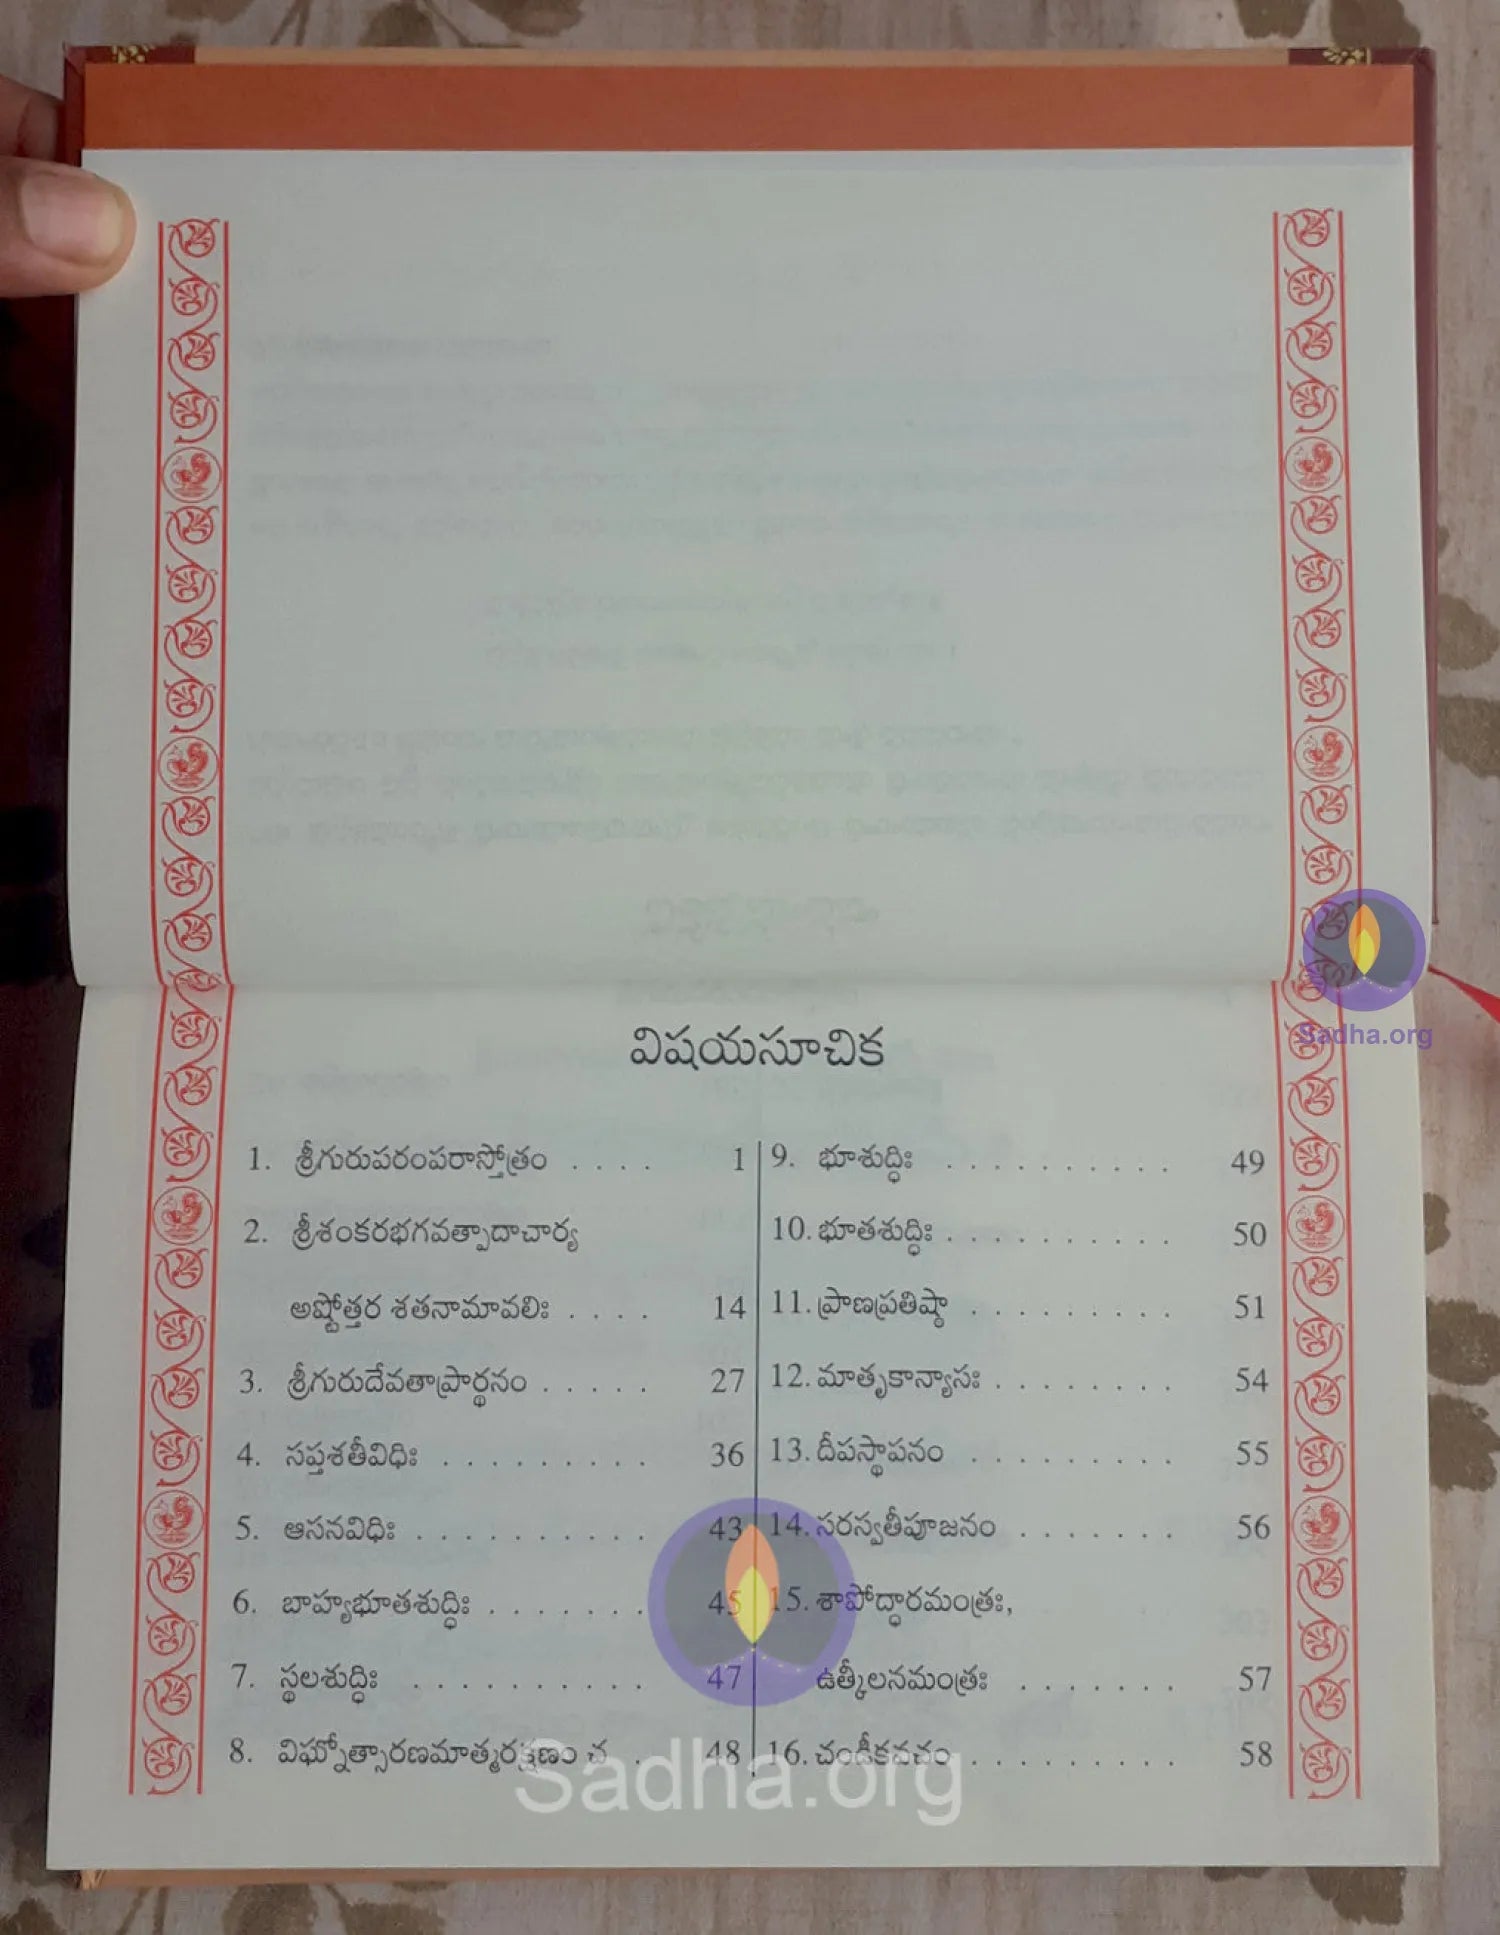 విషయసూచిక
1. శ్రీగురుపరంపరాస్తోత్రం . . . . 1
2. శ్రీశంకరభగవత్పాదాచార్య
అష్టోత్తర శతనామావలిః . . . . 14
3. శ్రీగురుదేవతాప్రార్థనం . . . . . 27
4. సప్తశతీవిధిః . . . . . . . . . 36
5. ఆసనవిధిః . . . . . . . . . . 43
6. బాహ్యభూతశుద్ధిః . . . . . . . 45
7. స్థలశుద్ధిః . . . . . . . . . . 47
8. విఘ్నోత్సారణమాత్మరక్షణం చ . 48
9. భూశుద్ధిః . . . . . . . . . . 49
10. భూతశుద్ధిః . . . . . . . . . . 50
11. ప్రాణప్రతిష్ఠా . . . . . . . . . 51
12. మాతృకాన్యాసః . . . . . . . . 54
13. దీపస్థాపనం . . . . . . . . . 55
14. సరస్వతీపూజనం . . . . . . . 56
15. శాపోద్ధారమంత్రః,
ఉత్కీలనమంత్రః . . . . . . . 57
16. చండీకవచం . . . . . . . . . 58
Sadha.org
Sadha.org